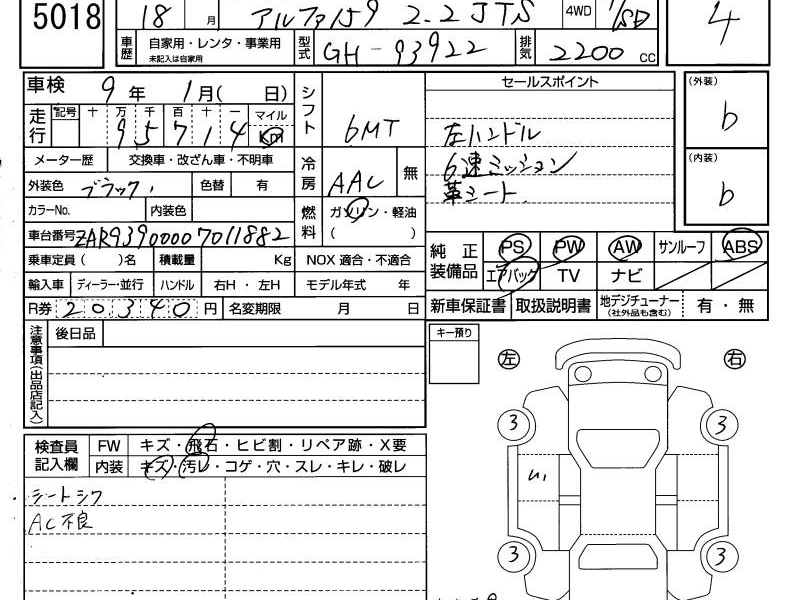 5018 18 月 アルファ159 2.2JTS 4WD 4
車歴 自家用・レンタ・事業用 未記入は自家用 型式 GH-93922 排気 2200 cc
車検 9年 1月( 日) シフト 6MT セールスポイント (外装) b
走行 記号 十 万 千 百 十 一 マイル km 9 5 7 1 4
左ハンドル
メーター歴 交換車・改ざん車・不明車 冷房 AAC 無 6速ミッション (内装) b
外装色 ブラック 色替 有 革シート
カラーNo. 内装色 燃料 ガソリン・軽油 ( )
車台番号 ZAR93900007011882 純正装備品 PS PW AW サンルーフ ABS
乗車定員( )名 積載量 Kg NOX 適合・不適合 エアバック TV ナビ
輸入車 ディーラー・並行 ハンドル 右H・左H モデル年式 年
R券 20340 円 名変期限 月 日 新車保証書 取扱説明書 地デジチューナー (社外品も含む) 有・無
注意事項(出品店記入) 後日品 キー預り 左 右
3 3
検査員記入欄 FW キズ・飛石・ヒビ割・リペア跡・X要
内装 キズ・汚レ・コゲ・穴・スレ・キレ・破レ
シートシワ
AC不良
3 3